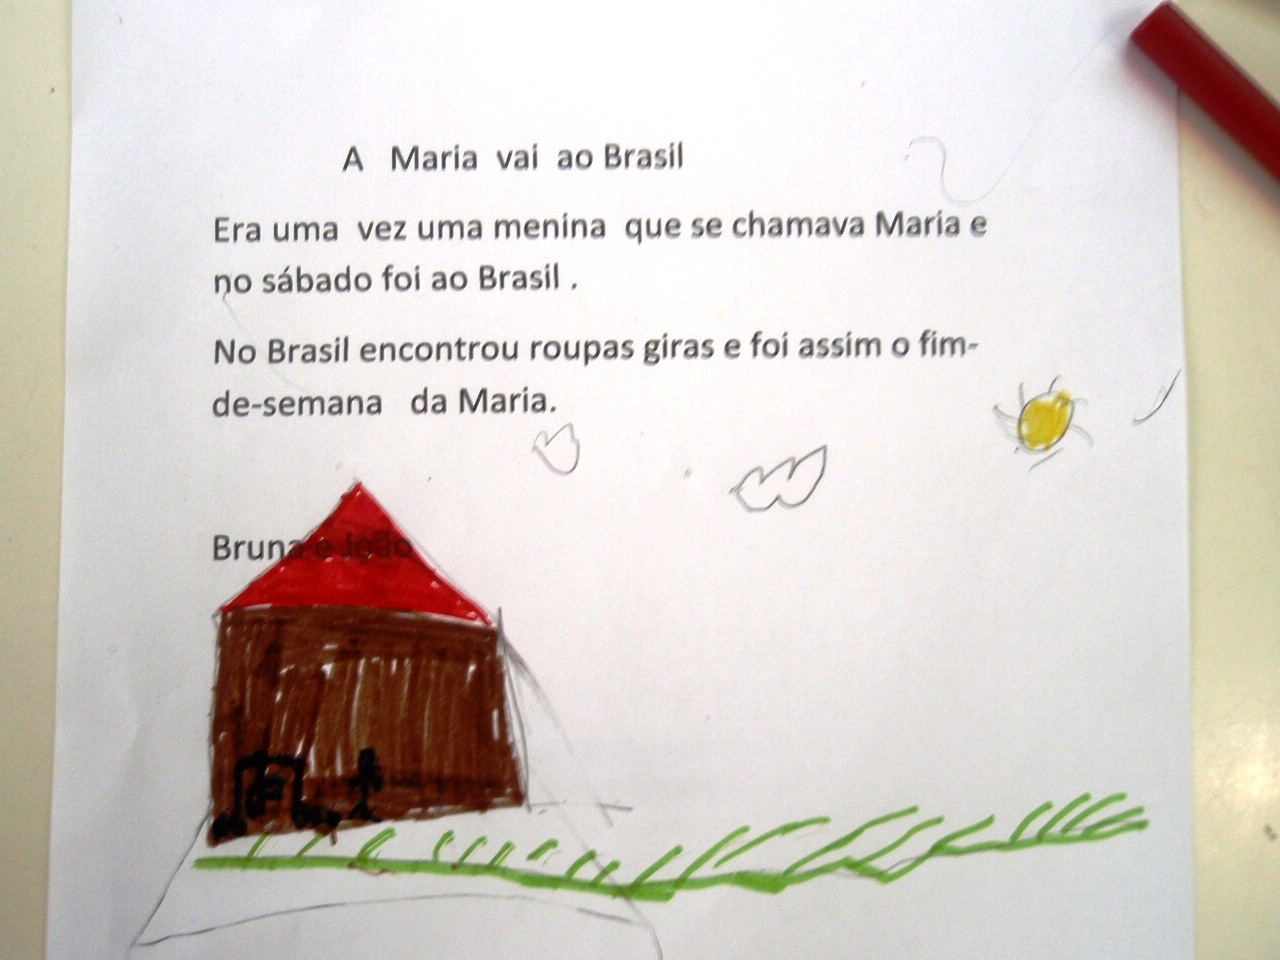 A Maria vai ao Brasil
Era uma vez uma menina que se chamava Maria e
no sábado foi ao Brasil .
No Brasil encontrou roupas giras e foi assim o fim-
de-semana da Maria.
Bruna e João